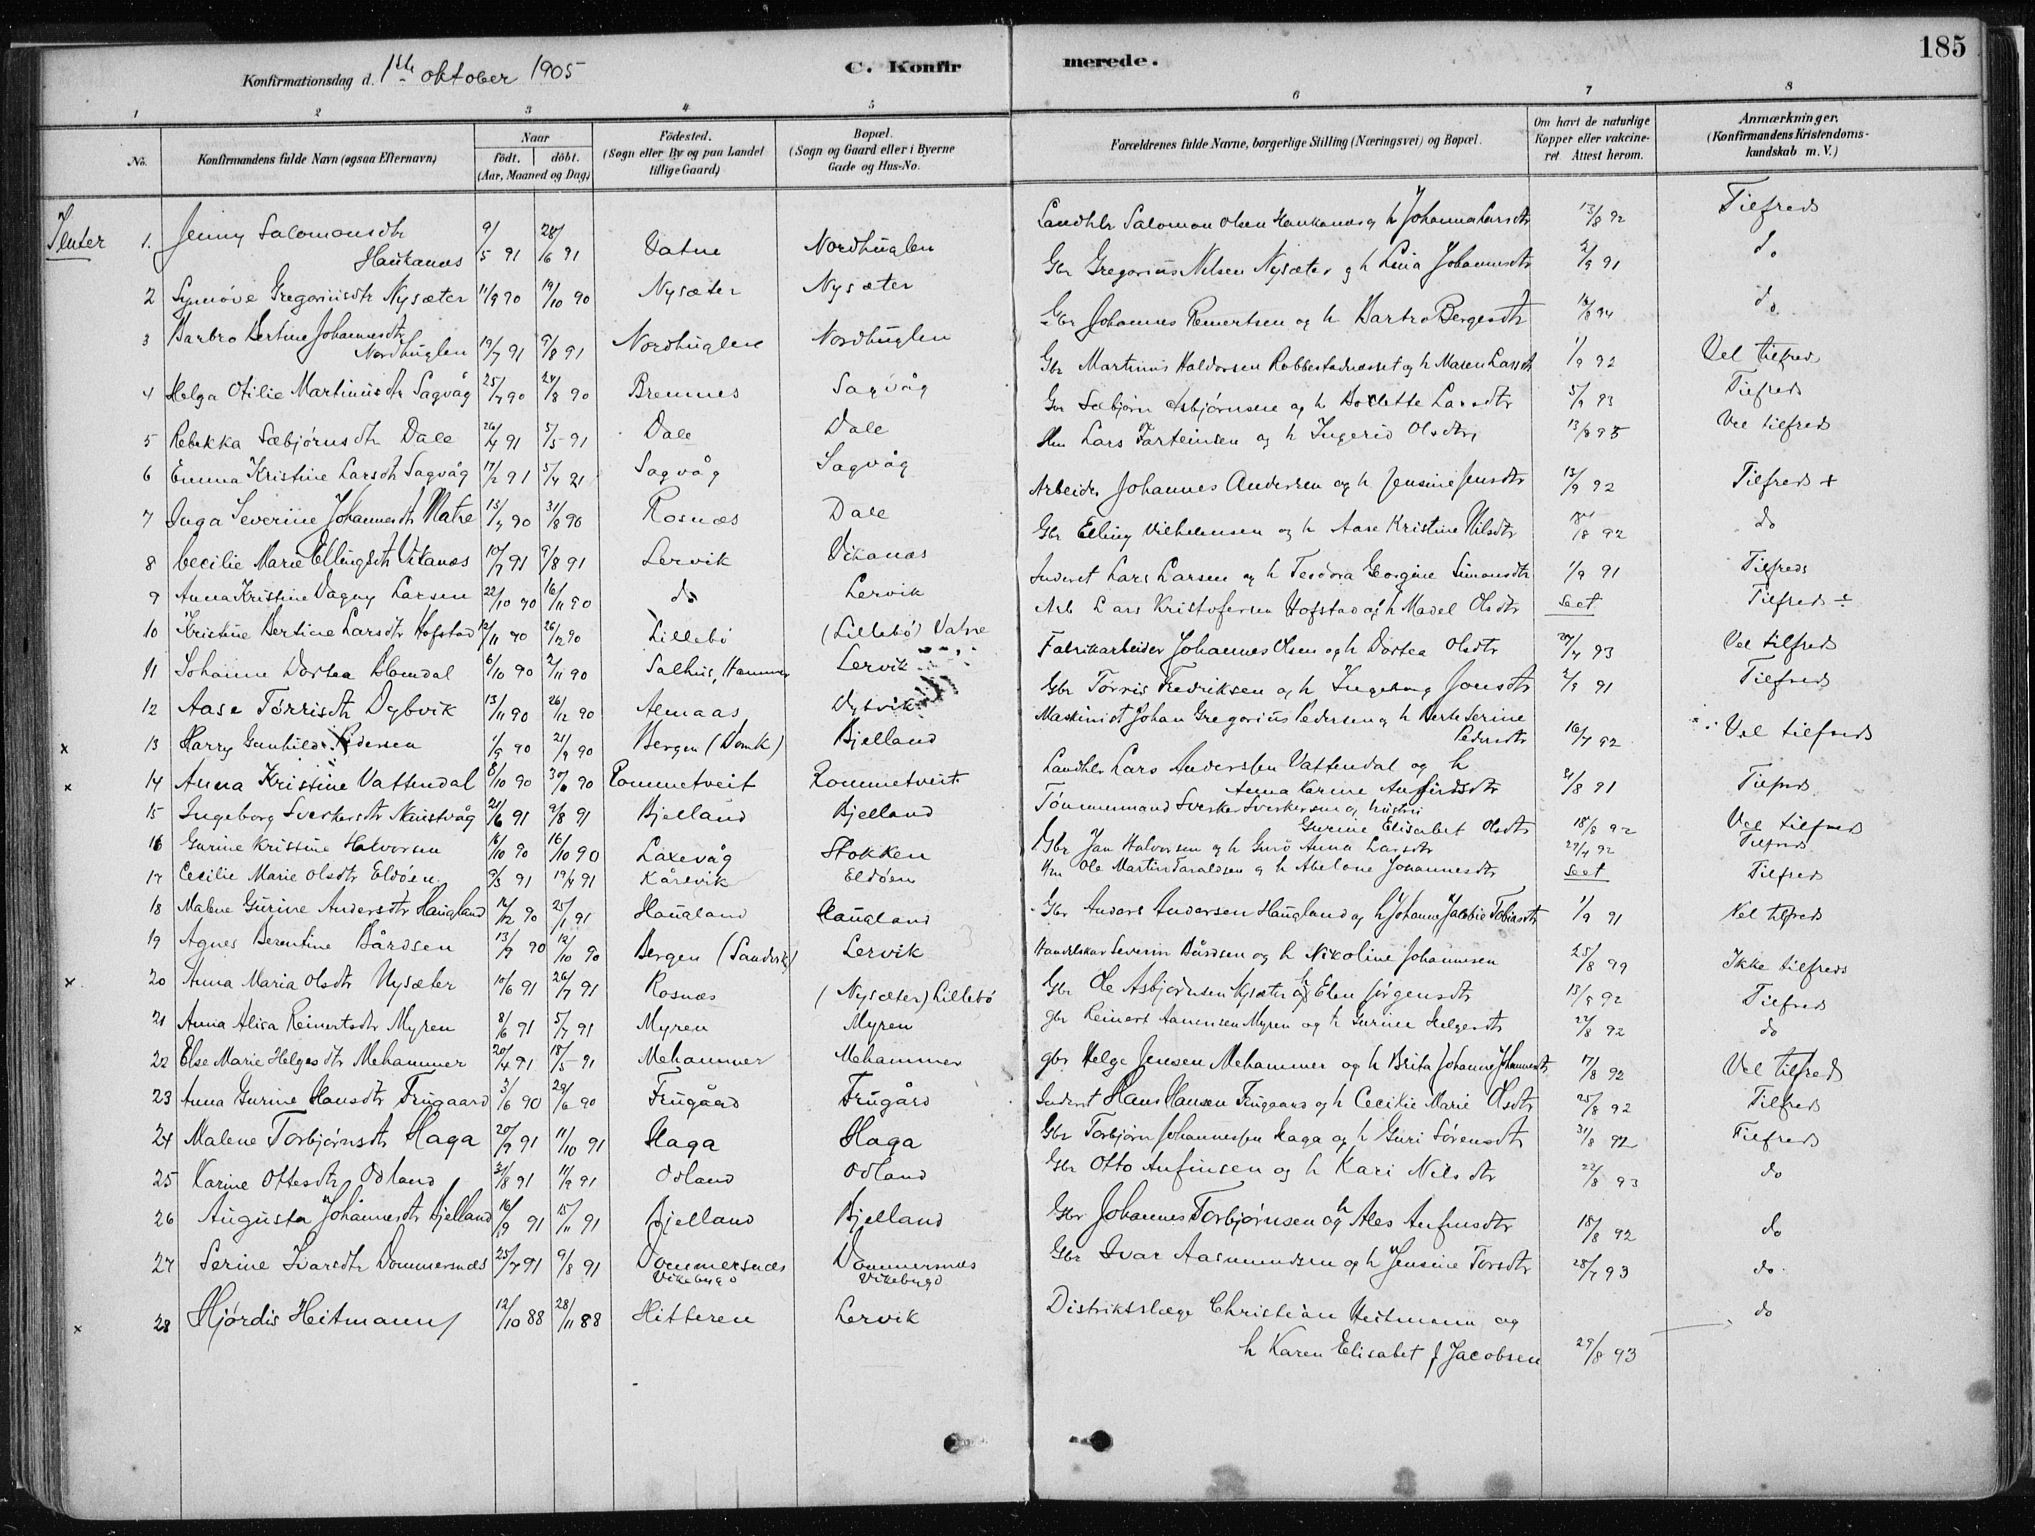 185
Konfirmationsdag d. 1ste oktober 1905
C. Konfirmerede.
1 2 3 4 5 6 7 8
No. Konfirmandens fulde Navn (ogsaa Efternavn) Naar født. døbt. (Aar, Maaned og Dag) Fødested. (Sogn eller By og paa Landet tillige Gaard) Bopæl. (Sogn og Gaard eller i Byerne Gade og Hus-No. Forældrenes fulde Navne, borgerlige Stilling (Næringsvei) og Bopæl. Om havt de naturlige Kopper eller vakcineret. Attest herom. Anmærkninger. (Konfirmandens Kristendomskundskab m. V.)
1. Jenny Salomonsdtr Haukanes 9/5 91 28/6 91 Vatne Nordhuglen Landhdlr Salomon Olsen Haukanes og h Johanna Larsdtr 13/8 92 Tilfreds
2 Synnöve Gregoriusdtr Nysæter 11/9 90 19/10 90 Nysæter Nysæter Gbr Gregorius Nilsen Nysæter og h Lina Johannesdtr 2/9 91 do
3 Barbro Bertine Johannesdtr Nordhuglen 19/7 91 9/8 91 Nordhuglen Nordhuglen Gbr Johannes Reinertsen og h Barbro Bergesdtr 94 do
4 Helga Otilie Martinusdtr Sagvåg 25/7 90 24/8 90 Bremnes Sagvåg Gbr Martinus Haldorsen Robbestadneset og h Maren Larsdtr 1/9 92 Vel tilfreds
5 Rebekka Sæbjørnsdtr Dale 26/4 91 5/5 91 Dale Dale Gbr Sæbjørn Asbjørnsen og h Bolette Larsdtr 5/9 93 Tilfreds
6 Emma Kristine Larsdtr Sagvåg 17/2 91 5/4 91 Sagvåg Sagvåg Hm Lars Farteinsen og h Ingerid Olsdtr 13/8 95 Vel tilfreds
7 Inga Severine Johannesdtr Matre 13/7 90 31/8 90 Rosnæs Dale Arbeider Johannes Andersen og h Jensine Jensdtr 13/9 92 Tilfreds +
8 Cecilie Marie Ellingsdtr Vikanæs 10/7 91 9/8 91 Lervik Vikanæs Gbr Elling Vilhelmsen og h Aase Kristine Nilsdtr /8 92 do
9 Anna Kristine Dagny Larsen 22/10 90 16/11 90 do Lervik Inderst Lars Larsen og h Teodora Georgine Simonsdtr 1/9 91 Tilfreds
10 Kristine Bertine Larsdtr Hofstad 12/11 90 26/12 90 Lillebö (Lillebö) Vatne Arb Lars Kristofersen Hofstad og h Madel Olsdtr seet Tilfreds ÷
11 Johanne Dortea Blomdal 6/10 90 2/11 90 Salhus, Hammer Lervik Fabrikarbeider Johannes Olsen og h Dortea Olsdtr 24/4 93 Vel tilfreds
12 Aase Törrisdtr Dybvik 13/11 90 26/12 90 Almaas Dybvik Gbr Törris Fredriksen og h Ingeborg Jonsdtr 2/9 91 Tilfreds
x 13 Harry Gunhilde Pedersen 1/9 90 21/9 90 Bergen (Domk) Bjelland Maskinist Johan Gregorius Pedersen og h Berte Serine Pedersdtr 16/7 92 Vel tilfreds
x 14 Anna Kristine Vattendal 8/10 90 30/ 90 Rommetveit Rommetveit Landhdlr Lars Anderssen Vattendal og h Anna Karine Anfindsdtr 31/8 91 Tilfreds
15 Ingeborg Sverkersdtr Naustvåg 21/6 91 9/8 91 Bjelland Bjelland Tömmermand Sverker Sverkersen og hustru Gurine Elisabet Olsdtr 18/8 92 Vel tilfreds
16 Gurine Kristine Halvorsen 16/10 90 16/10 90 Laxevåg Stokken Gbr Jan Halvorsen og h Guro Anna Larsdtr 27/4 92 Tilfreds
17 Cecilie Marie Olsdtr Eldöen 9/3 91 19/4 91 Kårevik Eldöen Hm Ole Martin Taraldsen og h Abelone Johannesdtr seet Tilfreds
18 Malene Gurine Andersdtr Haugland 14/12 90 25/1 91 Haugland Haugland Gbr Anders Andersen Haugland og h Johanne Jacobie Tobiasdtr 1/9 91 Vel tilfreds
19 Agnes Berentine Bårdsen 13/9 90 12/10 90 Bergen (Sandvik) Lervik Handelskar Severin Bårdsen og h Nikoline Johannesen 25/8 99 Ikke tilfreds
x 20 Anna Maria Olsdtr Nysæter 10/6 91 26/7 91 Rosnæs (Nysæter) Lillebö Gbr Ole Asbjørnsen Nysæter og h Elen Jørgensdtr 13/9 92 Tilfreds
21 Anna Alisa Reinertsdtr Myren 8/6 91 5/7 91 Myren Myren gbr Reinert Aanensen Myren og h Gurine Helgesdtr 22/8 92 do
22 Else Marie Helgesdtr Mehammer 20/4 91 18/5 91 Mehammer Mehammer gbr Helge Jensen Mehammer og h Brita Johanne Johannesdtr 17/8 92 Vel tilfreds
23 Anna Gurine Hansdtr Frugaard 3/6 90 29/6 90 Frugård Frugård Inderst Hans Hansen Frugaard og h Cecilie Marie Olsdtr 25/8 92 Tilfreds
24 Malene Torbjørnsdtr Haga 20/9 91 11/10 91 Haga Haga Gbr Torbjørn Johannessen Haga og h Guri Sörensdtr 31/8 92 Tilfreds
25 Karine Ottesdtr Odland 31/8 91 11/9 91 Odland Odland Gbr Otto Anfinsen og h Kari Nilsdtr 22/8 93 do
26 Augusta Johannesdtr Bjelland 16/9 91 15/11 91 Bjelland Bjelland Gbr Johannes Torbjørnsen og h Ales Anfinsdtr 18/8 92 do
27 Serine Ivarsdtr Dommersnæs 25/7 91 9/8 91 Dommersnæs Vikebygd Dommersnæs Vikebygd Gbr Ivar Aasmundsen og h Jensine Torsdtr 28/7 93 do
x 28 Hjørdis Heitmann 12/10 88 28/11 88 Hitteren Lervik Distriktslæge Christian Heitmann og h Karen Elisabet f Jacobsen 29/8 93 do